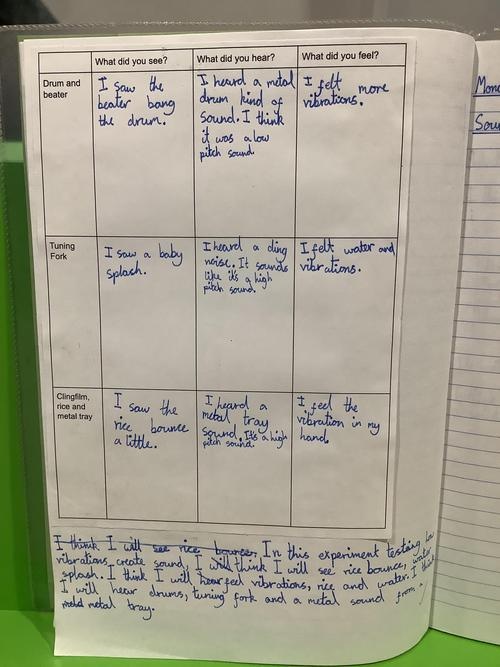 What did you see? What did you hear? What did you feel?
Drum and
beater
I saw the
beater bang
the drum.
I heard a metal
drum kind of
sound. I think
it was a low
pitch sound
I felt more
vibrations.
Tuning
Fork
I saw a baby
splash.
I heard a ding
noise. It sounds
like it's a high
pitch sound.
I felt water and
vibrations.
Clingfilm,
rice and
metal tray
I saw the
rice bounce
a little.
I heard a
metal tray
sound. It's a high
pitch sound.
I feel the
vibration in my
hand.
I think I will see rice bounce. In this experiment testing how
vibrations, create sound, I will think I will see rice bounce, water
splash. I think I will hear feel vibrations, rice and water. I think
I will hear drums, tuning fork and a metal sound from a
metal tray.
Mon
Sou